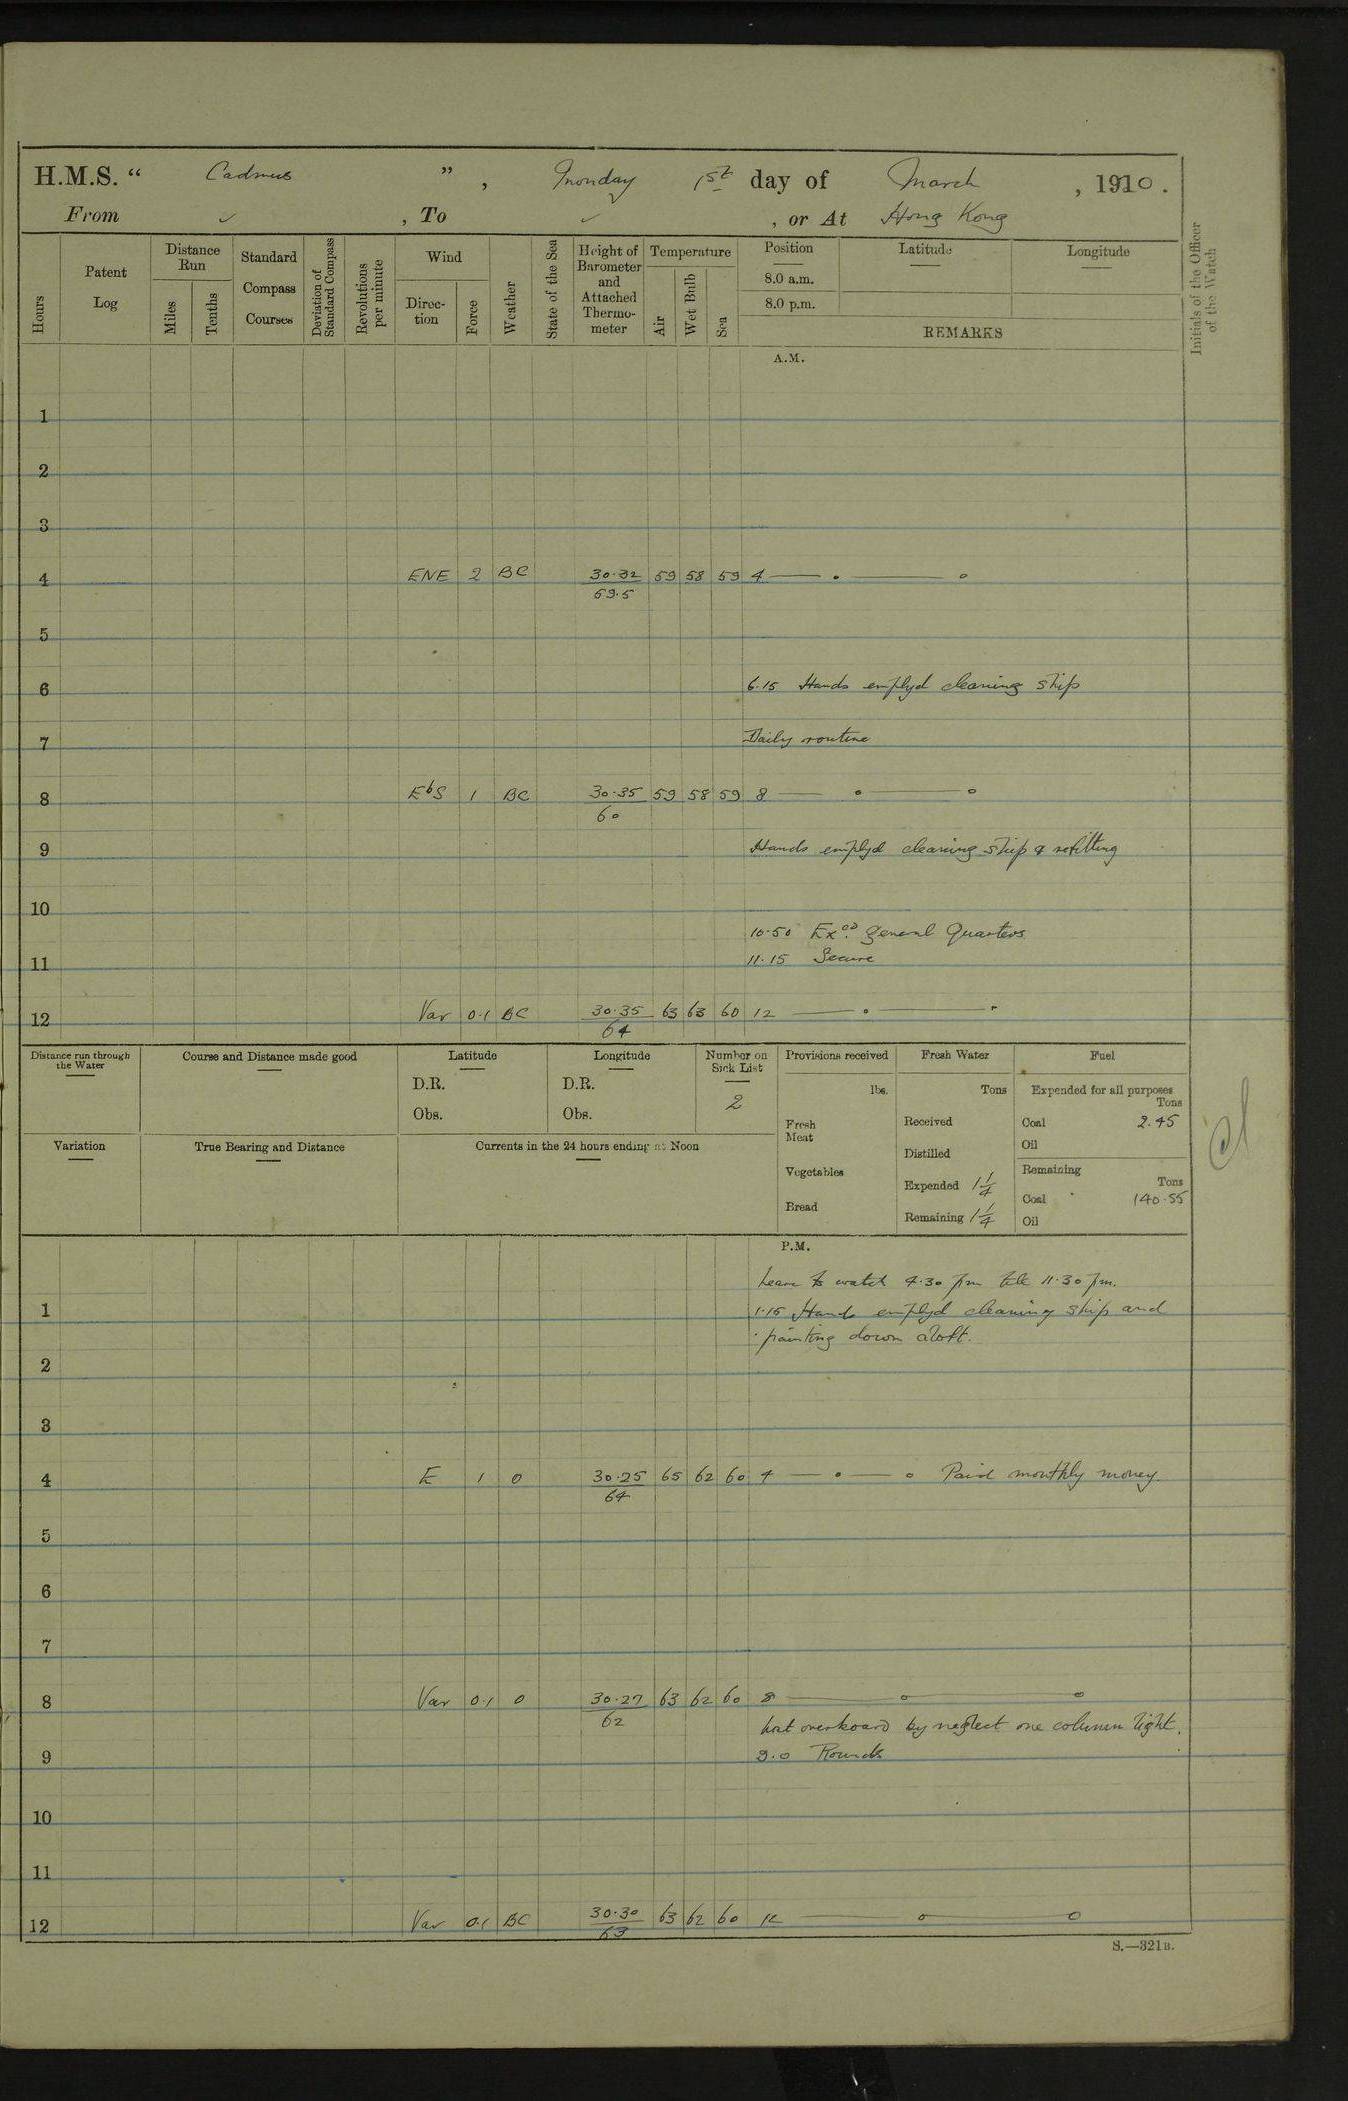 H.M.S. “ Cadmus ”, Monday 1st day of March, 1910.
From ✓, To ✓, or At Hong Kong
Hours
Patent Log
Distance Run
Miles
Tenths
Standard Compass Courses
Deviation of Standard Compass
Revolutions per minute
Wind
Direc-tion
Force
Weather
State of the Sea
Height of Barometer and Attached Thermo-meter
Temperature
Air
Wet Bulb
Sea
Position
8.0 a.m.
8.0 p.m.
Latitude
Longitude
REMARKS
Initials of the Officer of the Watch
A.M.
1
2
3
4 ENE 2 BC 30.32 59 58 59 4 — . — o
59.5
5
6 6.15 Hands emplyd cleaning ship
7 Daily routine
8 EbS 1 BC 30.35 59 58 59 8 — o — o
60
9 Hands emplyd cleaning ship & refitting
10
10.50 Exed General Quarters
11 11.15 Secure
12 Var 0.1 BC 30.35 63 63 60 12 — . — .
64
Distance run through the Water
Course and Distance made good
Latitude
D.R.
Obs.
Longitude
D.R.
Obs.
Number on Sick List
2
Provisions received
lbs.
Fresh Meat
Vegetables
Bread
Fresh Water
Tons
Received
Distilled
Expended 1 1/4
Remaining 1 1/4
Fuel
Expended for all purposes
Tons
Coal 2.45
Oil
Remaining
Tons
Coal 140.55
Oil
Variation
True Bearing and Distance
Currents in the 24 hours ending at Noon
P.M.
Leave to watch 4.30 pm till 11.30 pm.
1 1.15 Hands emplyd cleaning ship and
painting down aloft.
2
3
4 E 1 0 30.25 65 62 60 4 — o — o Paid monthly money.
64
5
6
7
8 Var 0.1 0 30.27 63 62 60 8 — o — o
62
Lost overboard by neglect one column light.
9 9.0 Rounds
10
11
12 Var 0.1 BC 30.30 63 62 60 12 — o — o
63
S.—321B.